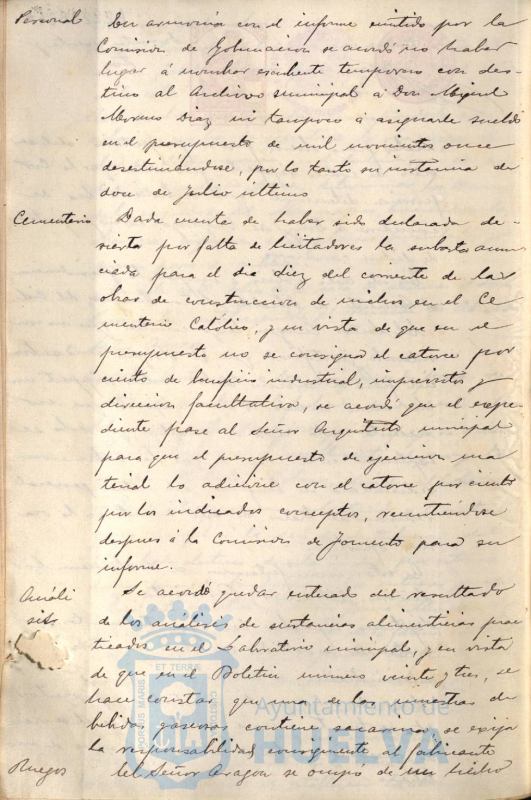 Personal En armonía con el informe emitido por la
Comision de Gobernacion se acordó no haber
lugar á nombrar escribiente temporero con des-
tino al Archivo municipal á Don Miguel
Moreno Diaz ni tampoco á asignarle sueldo
en el presupuesto de mil novecientos once
desestimándose, por lo tanto su instancia de
doce de Julio último
Cementerio Dada cuenta de haber sido declarada de-
sierta por falta de licitadores la subasta anun-
ciada para el dia diez del corriente de las
obras de construccion de nichos en el Ce
menterio Católico, y en vista de que en el
presupuesto no se consigna el catorce por
ciento de beneficio industrial, imprevistos y
direccion facultativa, se acordó que el expe-
diente pase al Señor Arquitecto municipal
para que el presupuesto de ejecucion ma
terial lo adicione con el catorce por ciento
por los indicados conceptos, remitiéndose
despues á la Comision de Fomento para su
informe.
Análi Se acordó quedar enterado del resultado
sis de los análisis de sustancias alimenticias prac
ticados en el Laboratorio municipal, y en vista
de que en el Boletin número veinte y tres, se
hace constar que una de las muestras de
bebidas gaseosas contiene sacarina se exija
la responsabilidad consiguiente al fabricante
Ruegos del Señor Aragon se ocupó de un hecho
PORTUS MARIS
ET TERRAE
CUSTODIA
Ayuntamiento de
HUELVA